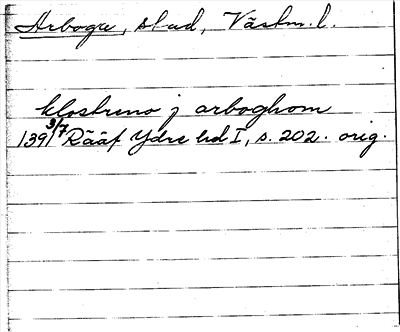 Arboga, stad, Västm. l.
klostreno j arboghom
1391 3/7 Rääf Ydre hd I, s. 202. orig.